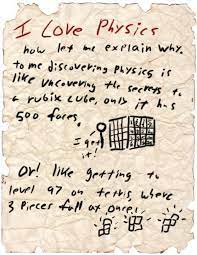 I Love Physics
now let me explain why.
to me discovering physics is
like uncovering the secrets to
a rubix cube, only it has
500 faces.
I get it!
Or! like getting to
level 97 on tetris, where
3 pieces fall at once!